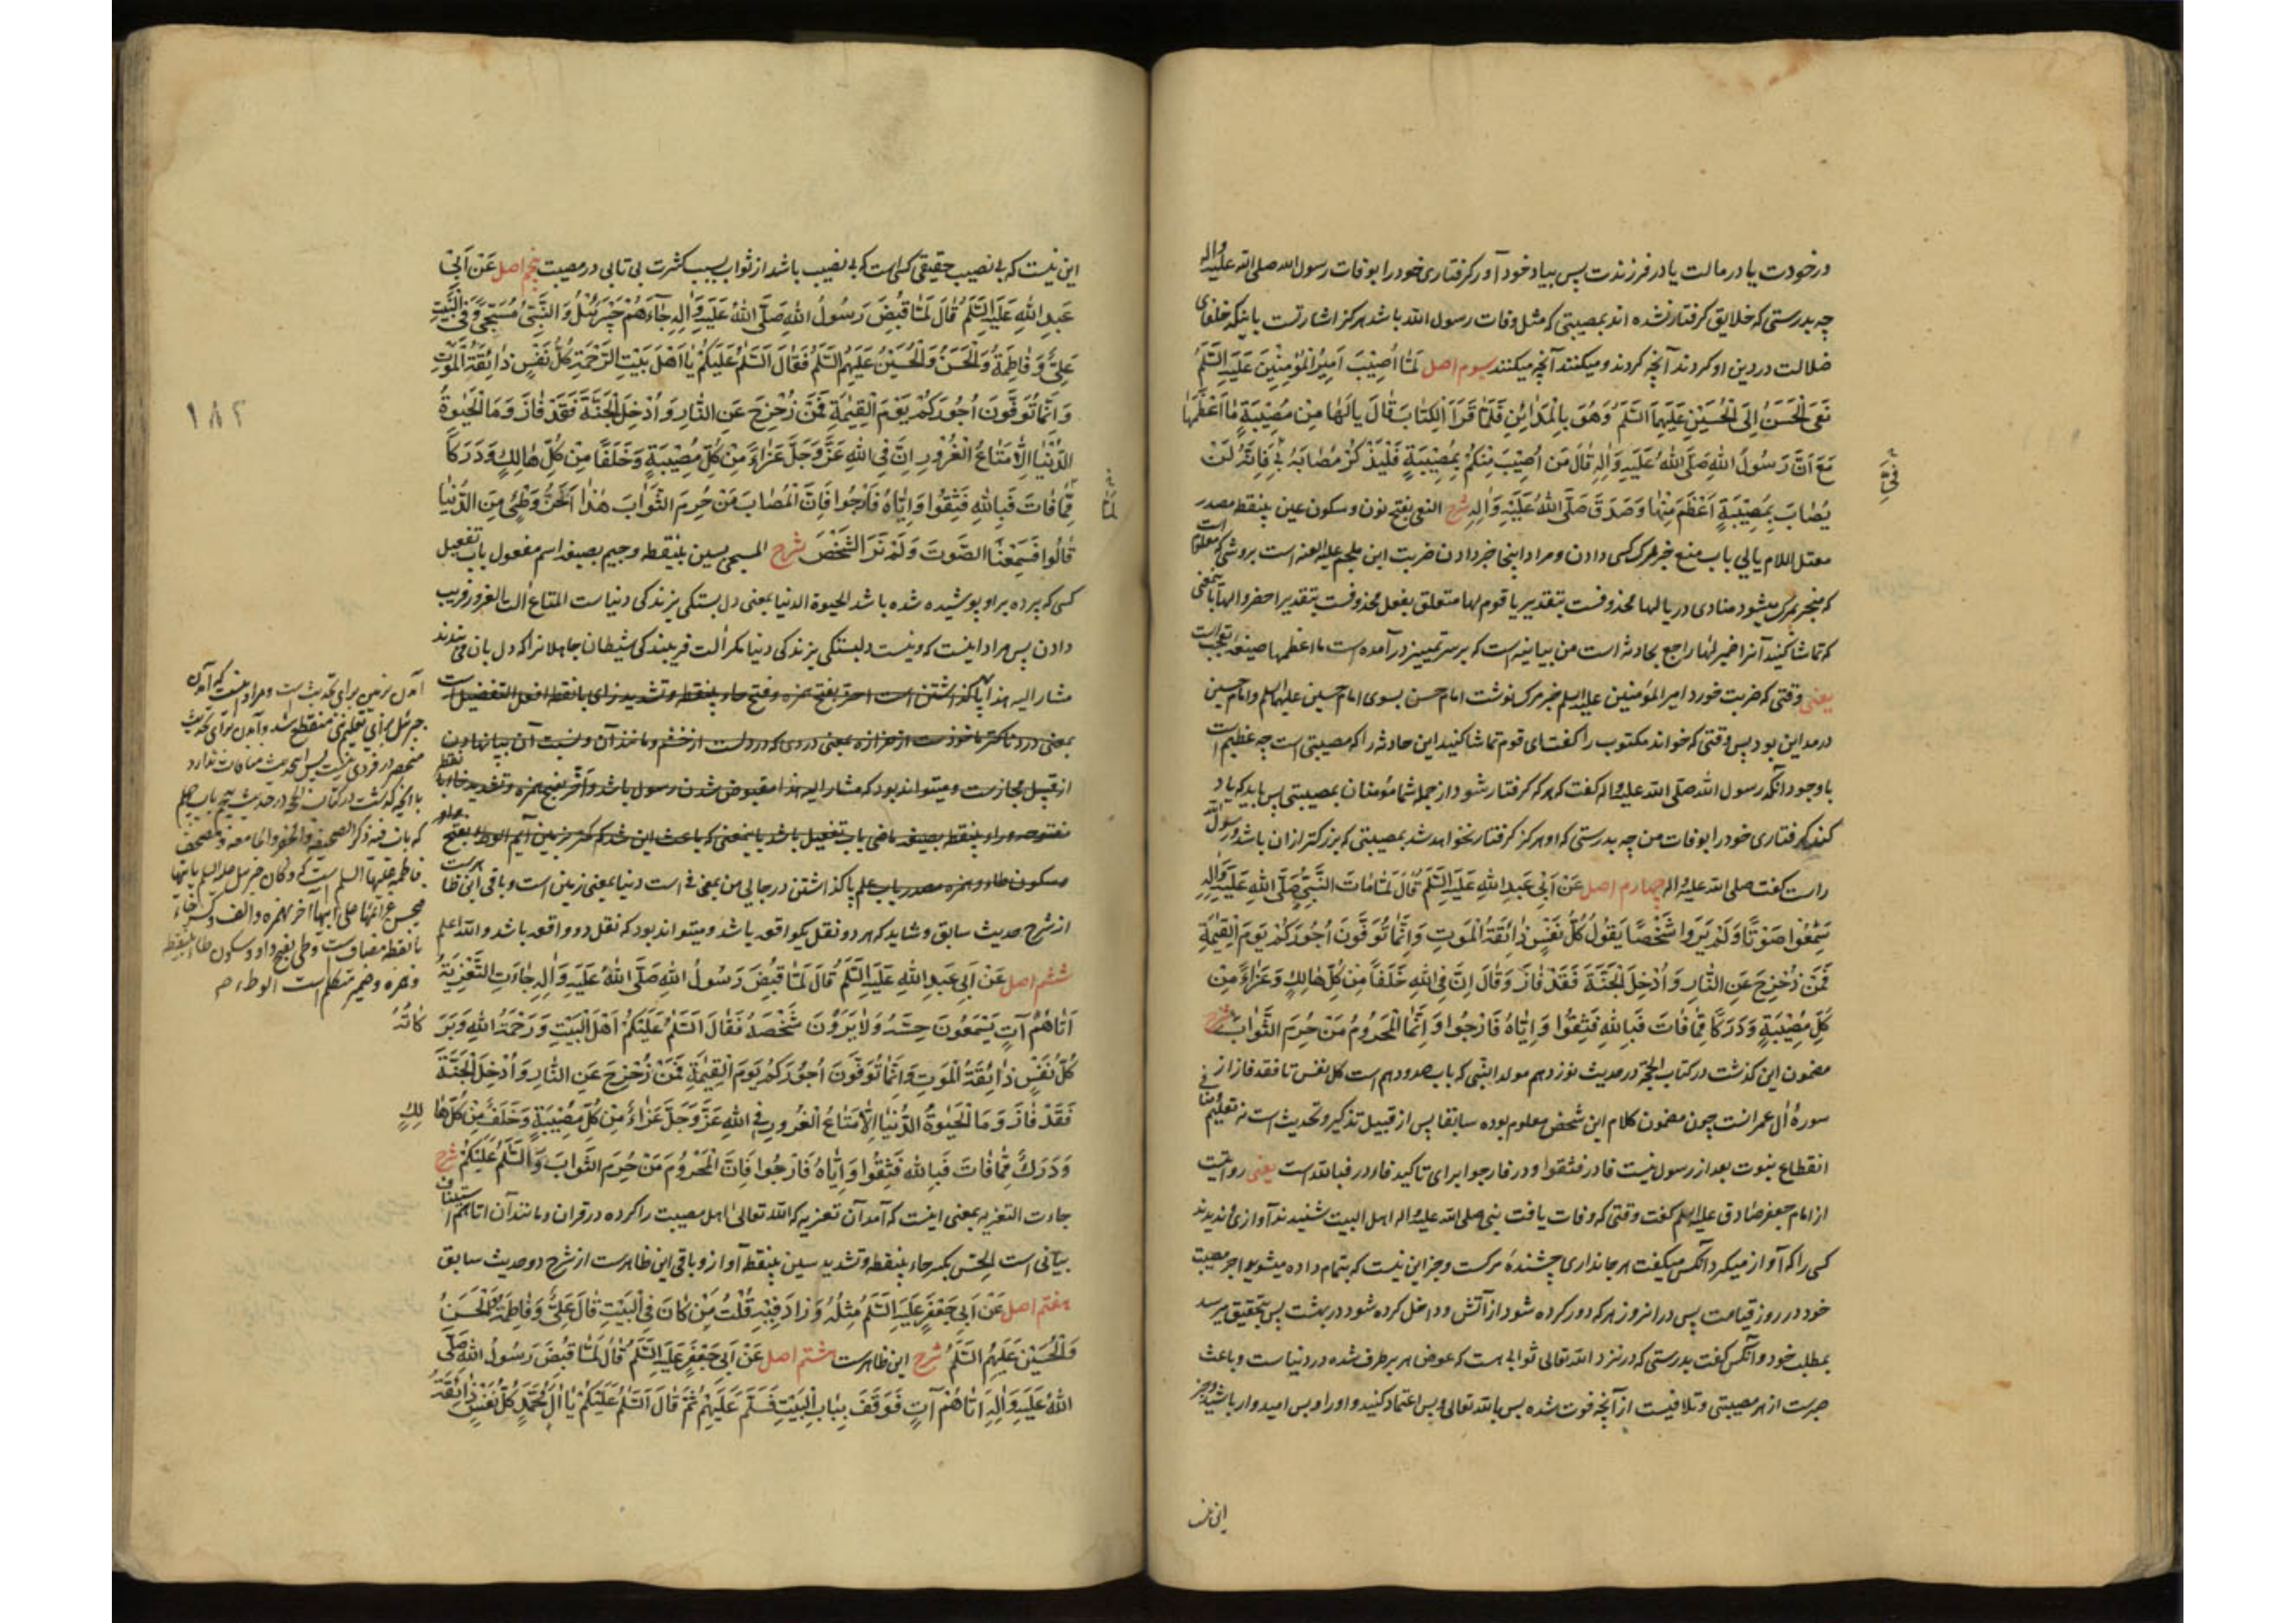 در خودت یا در مالت یا در فرزندت پس بیاد خود آور کرفتاری خود را بوفات رسول الله صلی الله علیه واله
چه بدرستی که خلایق کرفتار نشده اند بمصیبتی که مثل وفات رسول الله باشد هرکز اشارتست باینکه خلفای
ضلالت در دین او کردند آنچه کردند و میکنند آنچه میکنند سیوم اصل لَمّا اُصیبَ اَمیرُ المُؤمِنینَ عَلَیهِ السَّلَمُ
نَعَی الحَسَنُ اِلَی الحُسَینِ عَلَیهِمَا السَّلَمُ وَهُوَ بِالمَدائِنِ فَلَمّا قَرَأَ الکِتابَ قالَ یالَها مِن مُصیبَةٍ ما اَعظَمَها
مَعَ اَنَّ رَسُولَ اللهِ صَلَّی اللهُ عَلَیهِ وَالِهِ قالَ مَن اُصیبَ مِنکُم بِمُصیبَةٍ فَلیَذکُر مُصابَهُ بی فَاِنَّهُ لَن
یُصابَ بِمُصیبَةٍ اَعظَمَ مِنها وَصَدَقَ صَلَّی اللهُ عَلَیهِ وَالِهِ شرح النعی بفتح نون و سکون عین بینقطه مصدر
معتل اللام یائی باب منع خبر مرک کسی دادن و مراد اینجا خبر دادن ضربت ابن ملجم علیه اللعنه است بروشی که معلوم است
که منجر بمرک میشود منادی در یالها محذوفست بتقدیر یا قوم لها متعلق بفعل محذوفست بتقدیر احضروا لها بمعنی
که تماشا کنید آنرا ضمیر لها راجع بحادثه است من بیانیه است که بر سر تمییز در آمده است ما اعظمها صیغه تعجب است
یعنی وقتی که ضربت خورد امیر المؤمنین علیه السلم خبر مرک نوشت امام حسن بسوی امام حسین علیهما السلم و امام حسین
در مداین بود پس وقتی که خواند مکتوب را کفت ای قوم تماشا کنید این حادثه را که مصیبتی است چه عظیم است
با وجود آنکه رسول الله صلی الله علیه واله کفت که هر که کرفتار شود از جمله شما مؤمنان بمصیبتی پس باید که یاد
کند کرفتاری خود را بوفات من چه بدرستی که او هرکز کرفتار نخواهد شد بمصیبتی که بزرکتر از ان باشد و رسول الله
راست کفت صلی الله علیه واله چهارم اصل عَن اَبی عَبدِ اللهِ عَلَیهِ السَّلَمُ قالَ لَمّا ماتَ النَّبِیُّ صَلَّی اللهُ عَلَیهِ وَالِهِ
سَمِعُوا صَوتًا وَلَم یَرَوا شَخصًا یَقُولُ کُلُّ نَفسٍ ذائِقَةُ المَوتِ وَاِنَّما تُوَفَّونَ اُجُورَکُم یَومَ القِیٰمَةِ
فَمَن زُحزِحَ عَنِ النّارِ وَاُدخِلَ الجَنَّةَ فَقَد فازَ وَقالَ اِنَّ فِی اللهِ خَلَفًا مِن کُلِّ هالِکٍ وَعَزاءً مِن
کُلِّ مُصیبَةٍ وَدَرَکًا مِمّا فاتَ فَبِاللهِ فَثِقُوا وَاِیّاهُ فَارجُوا وَاِنَّمَا المَحرُومُ مَن حُرِمَ الثَّوابَ شرح
مضمون این کذشت در کتاب الحجّة در حدیث نوزدهم مولد النبی که باب صد و دهم است کل نفس تا فقد فاز از
سورهٔ ال عمرانست چون مضمون کلام این شخص معلوم بوده سابقا پس از قبیل تذکیر و تحدیث است نه تعلیم
انقطاع نبوت بعد از رسول نیست فا در فثقوا و در فارجوا برای تاکید فاء در فبالله است یعنی روایتست
از امام جعفر صادق علیه السلم کفت وقتی که وفات یافت نبی صلی الله علیه واله اهل البیت شنیدند آوازی و ندیدند
کسی را که آواز میکرد آنکس میکفت هر جانداری چشندهٔ مرکست و جز این نیست که بتمام داده میشوید اجر مصیبت
خود در روز قیامت پس در انروز هر که دور کرده شود از آتش و داخل کرده شود در بهشت پس بتحقیق میرسد
بمطلب خود و آنکس کفت بدرستی که در نزد الله تعالی ثوابی هست که عوض هر برطرف شده در دنیاست و باعث
صبرست از هر مصیبتی و تلافیست از آنچه فوت شده پس بالله تعالی و بس اعتماد کنید و او را و بس امیدوار باشید و جز
این نیست
این نیست که بی نصیب حقیقی کسی است که بی نصیب باشد از ثواب بسبب کثرت بی تابی در مصیبت پنجم اصل عَن اَبی
عَبدِ اللهِ عَلَیهِ السَّلَمُ قالَ لَمّا قُبِضَ رَسُولُ اللهِ صَلَّی اللهُ عَلَیهِ وَالِهِ جاءَهُم جَبرَئیلُ وَالنَّبِیُّ مُسَجًّی وَفِی البَیتِ
عَلِیٌّ وَفاطِمَةُ وَالحَسَنُ وَالحُسَینُ عَلَیهِمُ السَّلَمُ فَقالَ اَلسَّلَمُ عَلَیکُم یا اَهلَ بَیتِ الرَّحمَةِ کُلُّ نَفسٍ ذائِقَةُ المَوتِ
وَاِنَّما تُوَفَّونَ اُجُورَکُم یَومَ القِیٰمَةِ فَمَن زُحزِحَ عَنِ النّارِ وَاُدخِلَ الجَنَّةَ فَقَد فازَ وَمَا الحَیٰوةُ
الدُّنیا اِلّا مَتاعُ الغُرُورِ اِنَّ فِی اللهِ عَزَّ وَجَلَّ عَزاءً مِن کُلِّ مُصیبَةٍ وَخَلَفًا مِن کُلِّ هالِکٍ وَدَرَکًا
مِمّا فاتَ فَبِاللهِ فَثِقُوا وَاِیّاهُ فَارجُوا فَاِنَّ المُصابَ مَن حُرِمَ الثَّوابَ هٰذا اٰخَرُ وَطئی مِنَ الدُّنیا
قالُوا فَسَمِعنَا الصَّوتَ وَلَم نَرَ الشَّخصَ شرح المسجی بسین بینقطه و جیم بصیغه اسم مفعول باب تفعیل
کسی که پرده بر او پوشیده شده باشد الحیوة الدنیا بمعنی دل بستکی بزندکی دنیاست المتاع الت الغرور فریب
دادن پس مراد اینست که و نیست دلبستکی بزندکی دنیا مکر الت فریبندکی شیطان جاهلانرا که دل بان می‌بندند
مشار الیه هذا پا کذاشتن است احزّ بفتح همزه و فتح حاء بینقطه و تشدید زای با نقطه افعل التفضیل است
بمعنی دردناکتر ماخوذست از حزازه بمعنی دردی که در دلست از خشم و مانند آن و نسبت آن بپا نهادن
از قبیل مجازست و میتواند بود که مشار الیه هذا مقبوض شدن رسول باشد و اخّر بفتح همزه و تشدید خاء با نقطه
مفتوحه و راء بینقطه بصیغه ماضی باب تفعیل باشد باینمعنی که باعث این شد که کمتر بزمین آیم الوطء بفتح واو
و سکون طاء و همزه مصدر باب علم پا کذاشتن در جایی من بمعنی فی است دنیا بمعنی زمین است و باقی این ظاهرست
از شرح حدیث سابق و شاید که هر دو نقل یکواقعه باشد و میتواند بود که نقل دو واقعه باشد والله اعلم
ششم اصل عَن اَبی عَبدِ اللهِ عَلَیهِ السَّلَمُ قالَ لَمّا قُبِضَ رَسُولُ اللهِ صَلَّی اللهُ عَلَیهِ وَالِهِ جاءَتِ التَّعزِیَةُ
اَتاهُم آتٍ یَسمَعُونَ حِسَّهُ وَلا یَرَونَ شَخصَهُ فَقالَ اَلسَّلَمُ عَلَیکُم اَهلَ البَیتِ وَرَحمَةُ اللهِ وَبَرَکاتُهُ
کُلُّ نَفسٍ ذائِقَةُ المَوتِ وَاِنَّما تُوَفَّونَ اُجُورَکُم یَومَ القِیٰمَةِ فَمَن زُحزِحَ عَنِ النّارِ وَاُدخِلَ الجَنَّةَ
فَقَد فازَ وَمَا الحَیٰوةُ الدُّنیا اِلّا مَتاعُ الغُرُورِ فِی اللهِ عَزَّ وَجَلَّ عَزاءٌ مِن کُلِّ مُصیبَةٍ وَخَلَفٌ مِن کُلِّ هالِکٍ
وَدَرَکٌ مِمّا فاتَ فَبِاللهِ فَثِقُوا وَاِیّاهُ فَارجُوا فَاِنَّ المَحرُومَ مَن حُرِمَ الثَّوابَ وَالسَّلَمُ عَلَیکُم شرح
جاءت التعزیه بمعنی اینست که آمد آن تعزیه که الله تعالی اهل مصیبت را کرده در قران و مانند آن اتاهم استیناف
بیانی است الحِسّ بکسر حاء بینقطه و تشدید سین بینقطه آواز و باقی این ظاهرست از شرح دو حدیث سابق
هفتم اصل عَن اَبی جَعفَرٍ عَلَیهِ السَّلَمُ مِثلُهُ وَزادَ فیهِ قُلتُ مَن کانَ فِی البَیتِ قالَ عَلِیٌّ وَفاطِمَةُ وَالحَسَنُ
وَالحُسَینُ عَلَیهِمُ السَّلَمُ شرح این ظاهرست هشتم اصل عَن اَبی جَعفَرٍ عَلَیهِ السَّلَمُ قالَ لَمّا قُبِضَ رَسُولُ اللهِ صَلَّی
اللهُ عَلَیهِ وَالِهِ اَتاهُم آتٍ فَوَقَفَ بِبابِ البَیتِ فَسَلَّمَ عَلَیهِم ثُمَّ قالَ اَلسَّلَمُ عَلَیکُم یا الَ مُحَمَّدٍ کُلُّ نَفسٍ ذائِقَةُ
۱۸۲
آمدن بزمین برای تحدیث است و مراد اینست که آمدن
جبرئیل برای تعلیم نبی منقطع شد و آمدن برای تحدیث